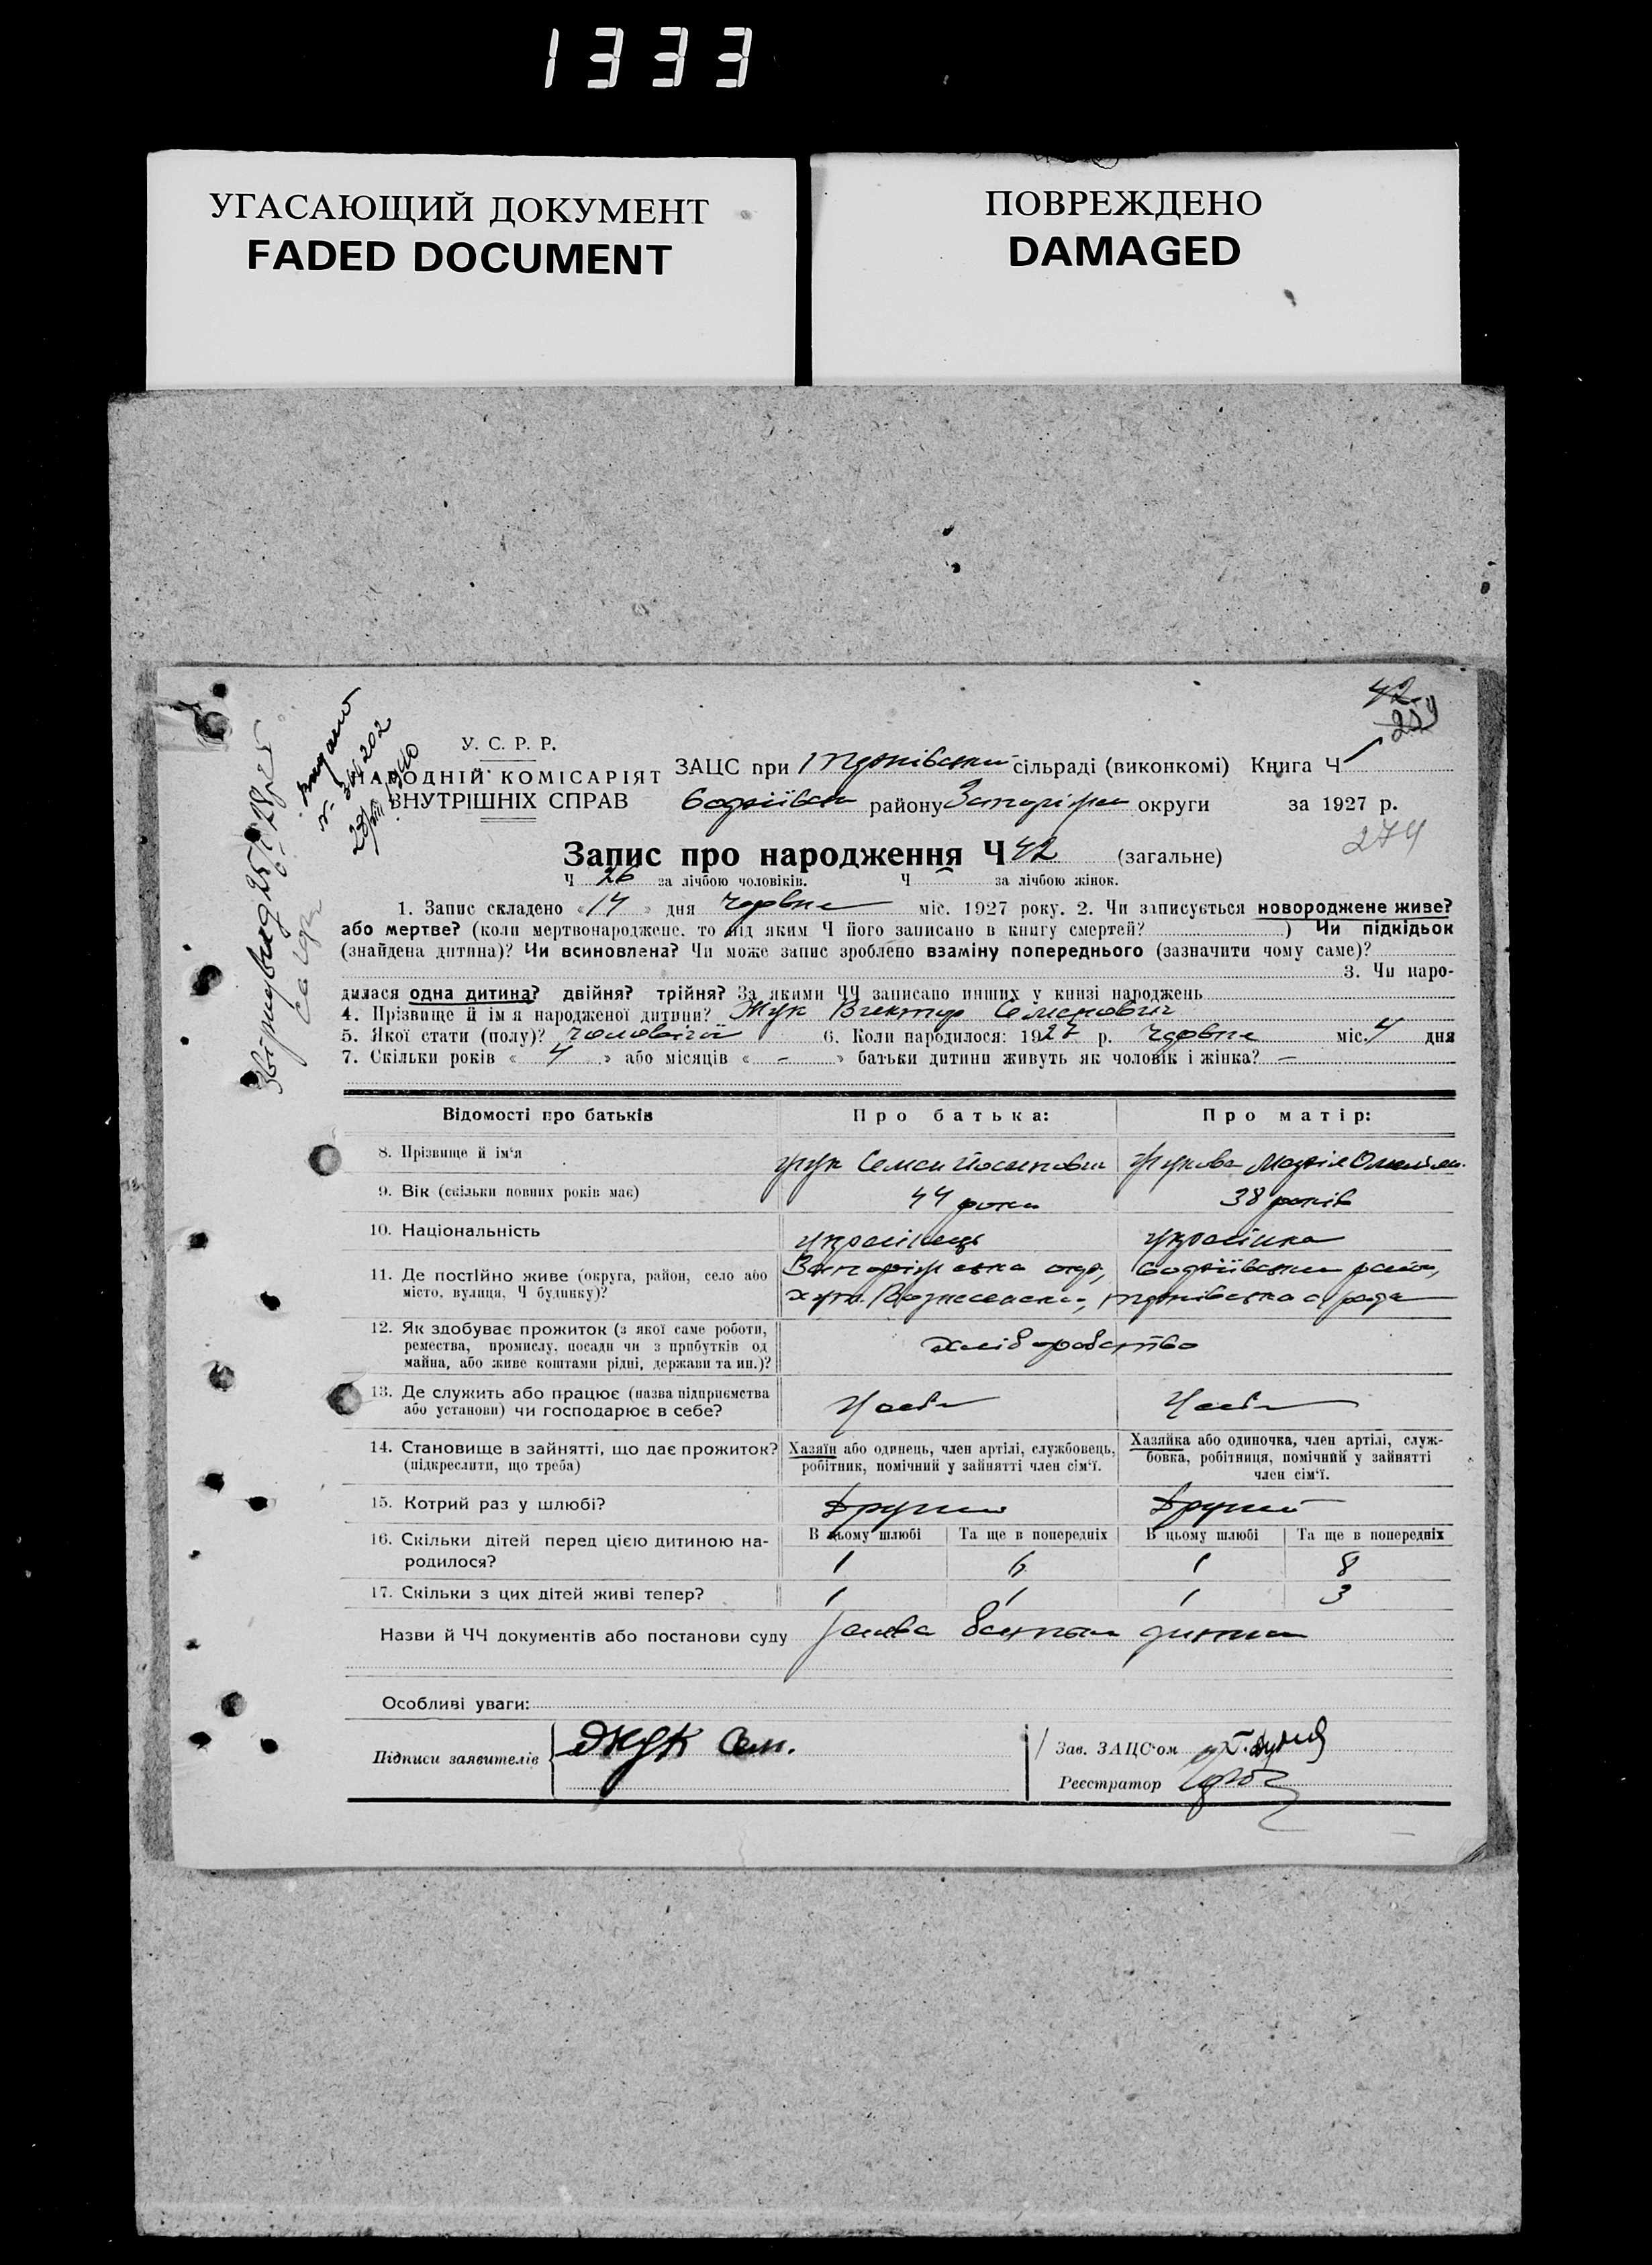 1333
УГАСАЮЩИЙ ДОКУМЕНТ
FADED DOCUMENT
ПОВРЕЖДЕНО
DAMAGED
42
У. С. Р. Р.
НАРОДНІЙ КОМІСАРІЯТ
ВНУТРІШНІХ СПРАВ
ЗАЦС при сільраді (виконкомі) Книга Ч
району округи за 1927 р.
274
Запис про народження Ч 42 (загальне)
Ч 26 за лічбою чоловіків. Ч за лічбою жінок.
1. Запис складено «14» дня червня міс. 1927 року. 2. Чи записується новороджене живе?
або мертве? (коли мертвонароджене, то під яким Ч його записано в книгу смертей? ) Чи підкідьок
(знайдена дитина)? Чи всиновлена? Чи може запис зроблено взаміну попереднього (зазначити чому саме)?
3. Чи наро-
дилася одна дитина? двійня? трійня? За якими ЧЧ записано инших у книзі народжень
4. Прізвище й ім'я народженої дитини? Жук Виктор Семенович
5. Якої стати (полу)? чоловічої 6. Коли народилося: 1927 р. червня міс. 4 дня
7. Скільки років « 4 » або місяців « - » батьки дитини живуть як чоловік і жінка? -
Відомості про батьків Про батька: Про матір:
8. Прізвище й ім'я Жук Семен Йосипович Жукова Марія
9. Вік (скільки повних років має) 44 роки 38 років
10. Національність українець українка
11. Де постійно живе (округа, район, село або
місто, вулиця, Ч будинку)?
Запоріжська окр., район,
хут. рада
12. Як здобуває прожиток (з якої саме роботи,
ремества, промислу, посади чи з прибутків од
майна, або живе коштами рідні, держави та ин.)?
хліборобство
13. Де служить або працює (назва підприємства
або установи) чи господарює в себе?
У себе У себе
14. Становище в зайнятті, що дає прожиток?
(підкреслити, що треба)
Хазяїн або одинець, член артілі, службовець,
робітник, помічний у зайнятті член сім'ї.
Хазяйка або одиночка, член артілі, служ-
бовка, робітниця, помічний у зайнятті
член сім'ї.
15. Котрий раз у шлюбі? Другий Другий
16. Скільки дітей перед цією дитиною на-
родилося?
В цьому шлюбі Та ще в попередніх В цьому шлюбі Та ще в попередніх
1 6 1 8
17. Скільки з цих дітей живі тепер? 1 1 1 3
Назви й ЧЧ документів або постанови суду Заява батька дитини
Особливі уваги:
Підписи заявителів Жук Сем.
Зав. ЗАЦС'ом
Реєстратор